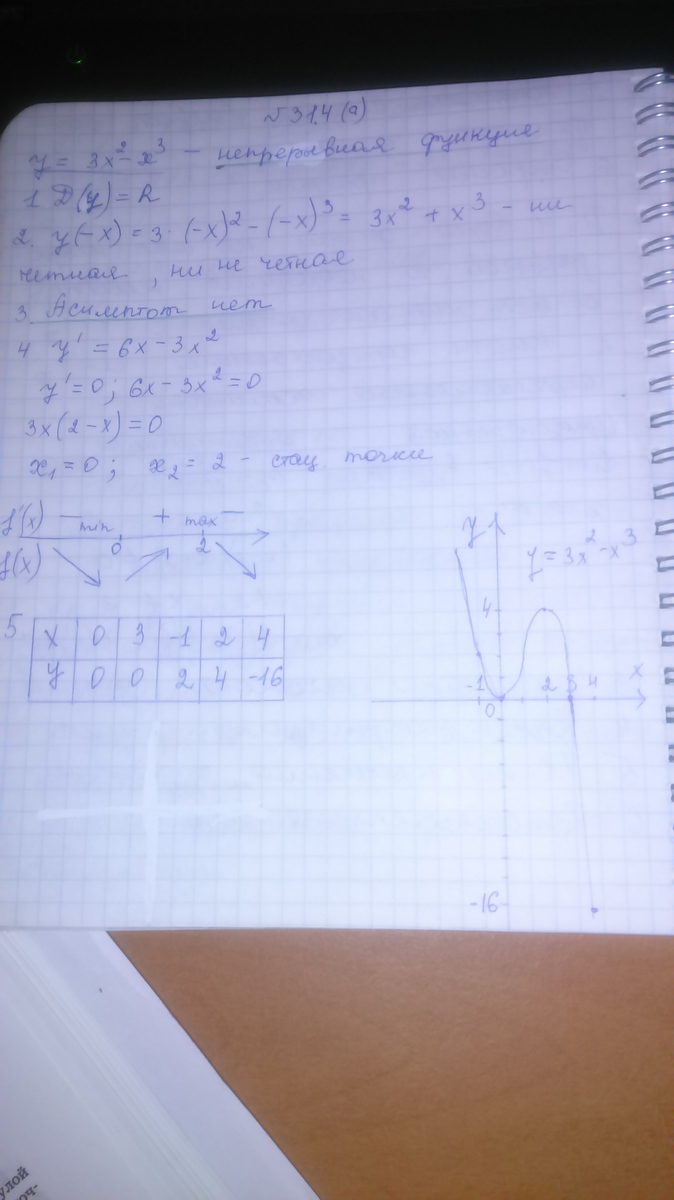 № 31.4 (а)
y = 3x² - x³ - непрерывная функция
1. D(y) = R
2. y(-x) = 3·(-x)² - (-x)³ = 3x² + x³ - ни
четная, ни не четная
3. Асимптот нет
4 y' = 6x - 3x²
y' = 0; 6x - 3x² = 0
3x(2 - x) = 0
x₁ = 0; x₂ = 2 - стац. точки
f'(x) - min + max -
0 2
f(x)
5
x 0 3 -1 2 4
y 0 0 2 4 -16
y
y = 3x² - x³
4
x
-1 2 3 4
0
-16
улой
оч-